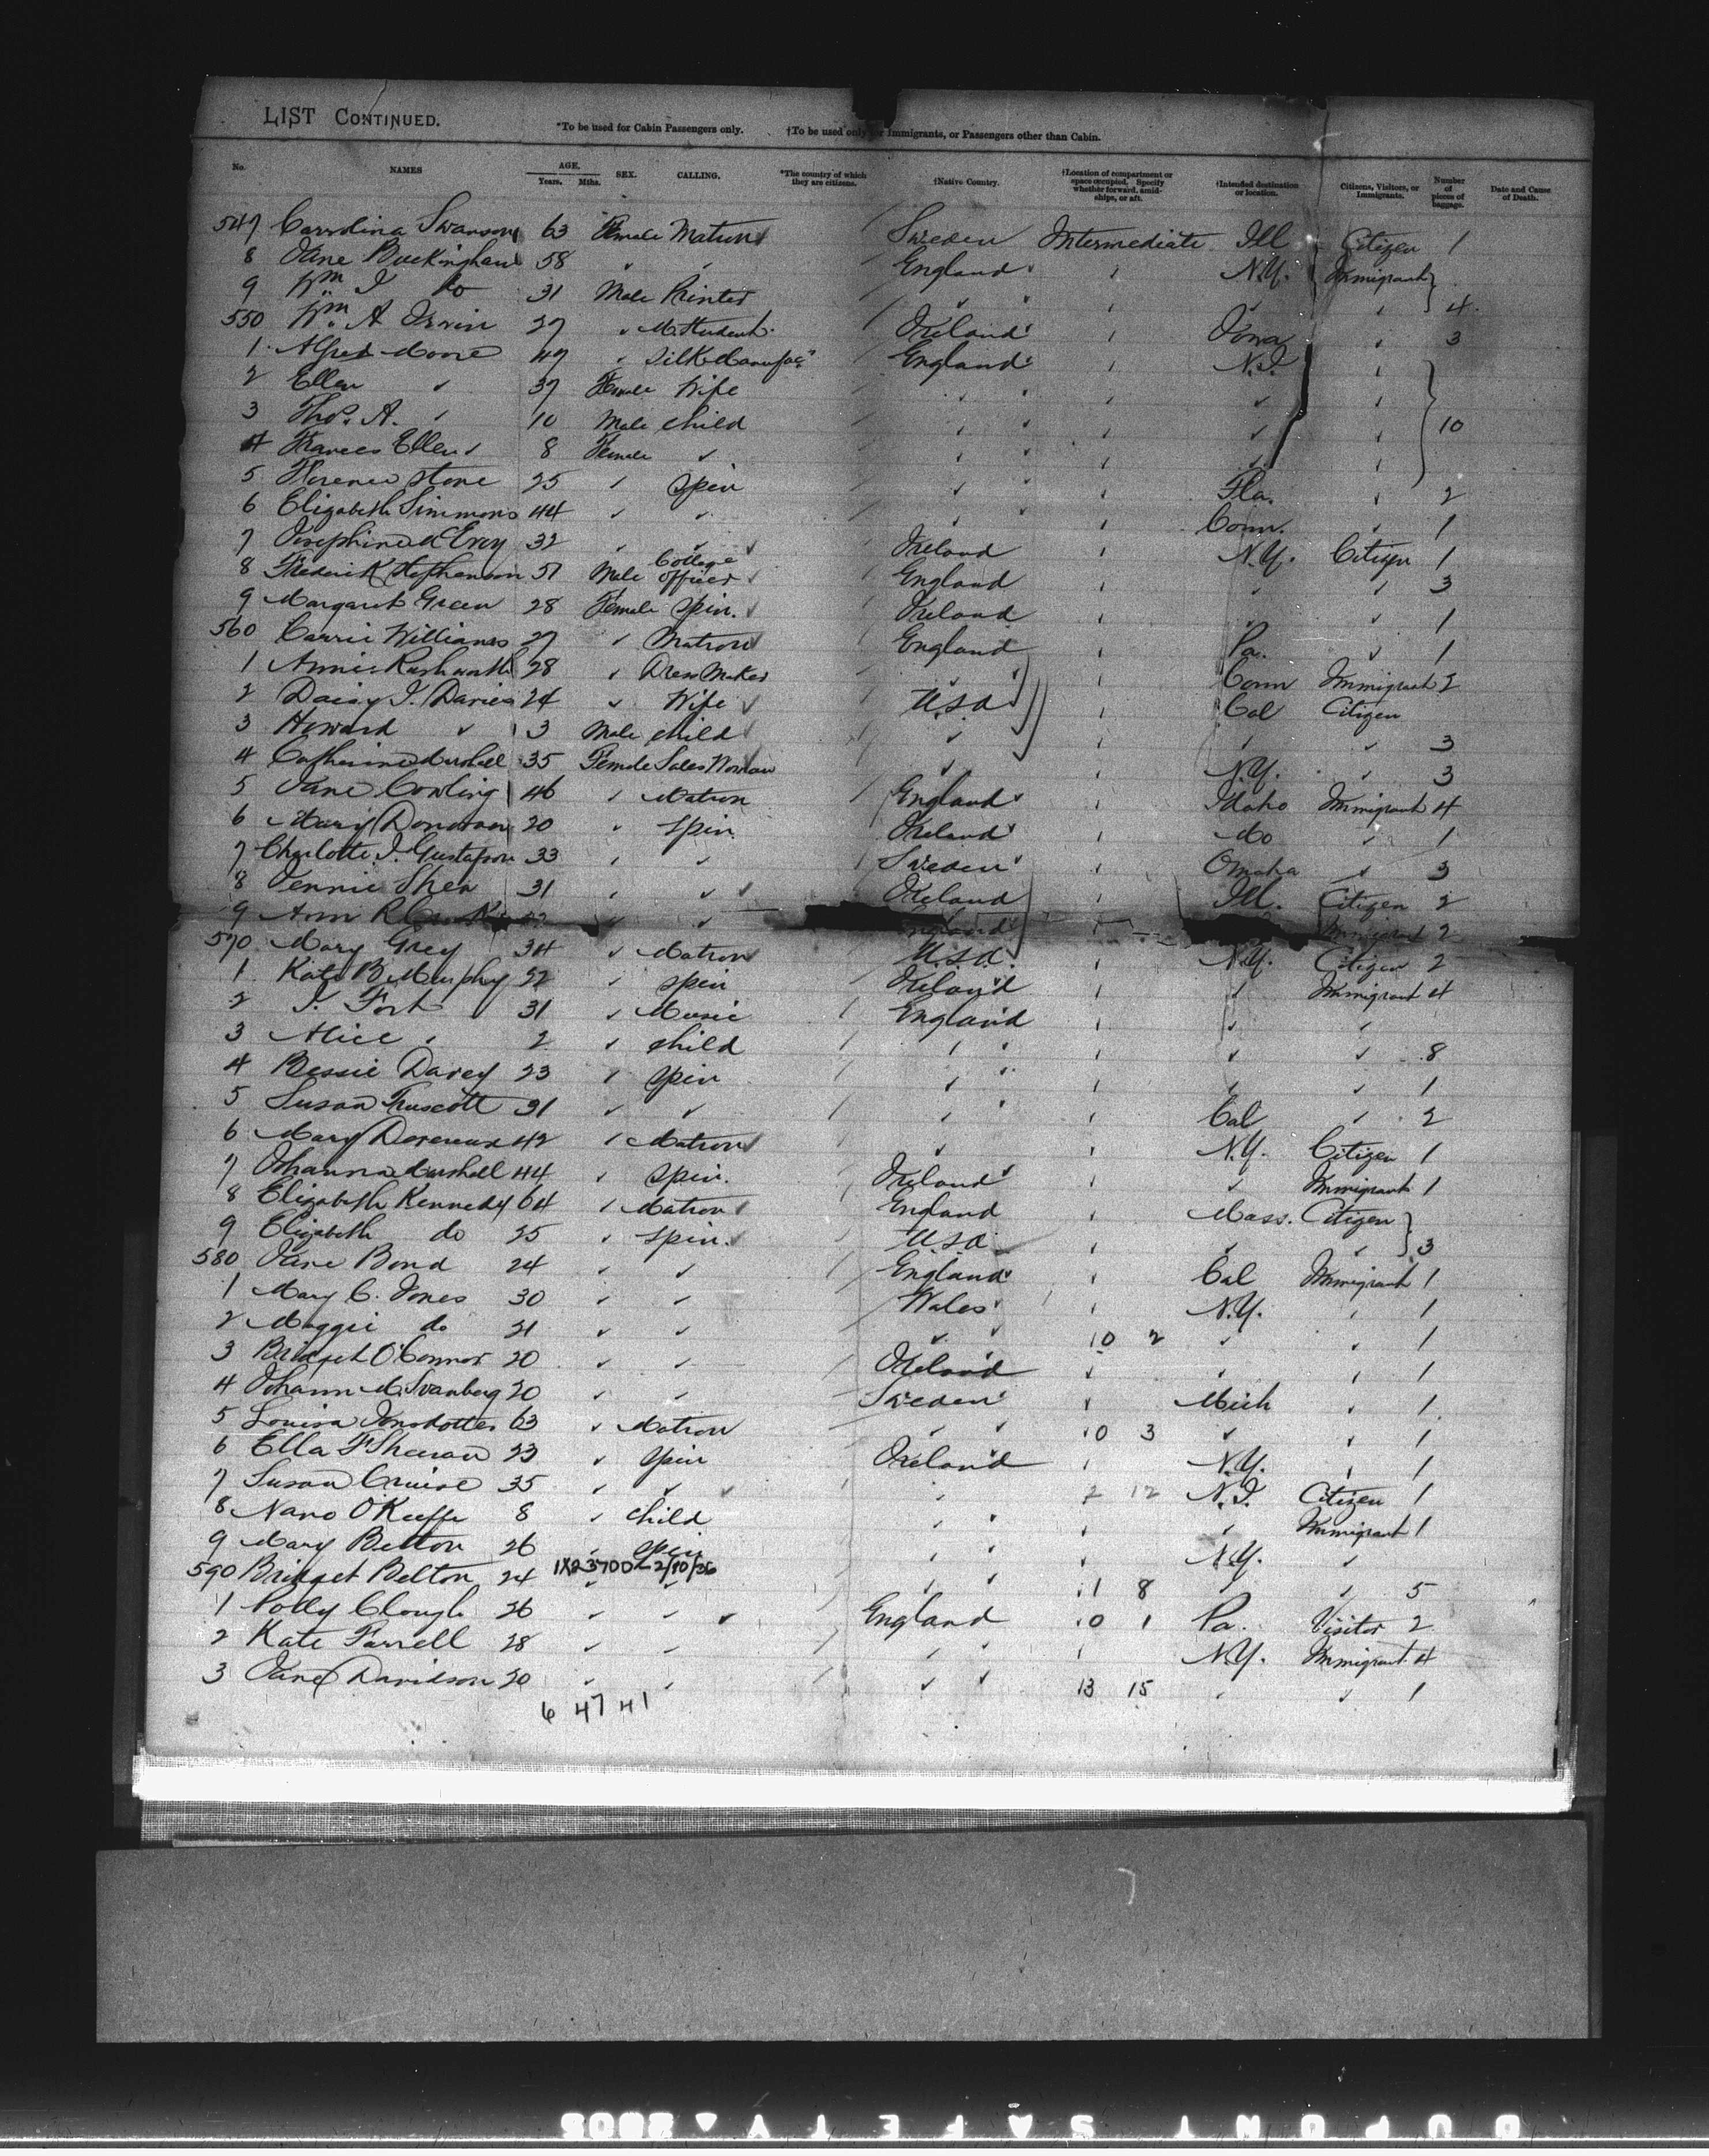 LIST CONTINUED.
*To be used for Cabin Passengers only. †To be used only for Immigrants, or Passengers other than Cabin.
No. NAMES AGE. Years. Mths. SEX. CALLING. *The country of which they are citizens. †Native Country. †Location of compartment or space occupied. Specify whether forward, amidships, or aft. †Intended destination or location. Citizens, Visitors, or Immigrants. Number of pieces of baggage. Date and Cause of Death.
547 Carrolina Swanson 63 Female Matron Sweden Intermediate Ill Citizen 1
8 Jane Buckingham 58 " " England " N.Y. Immigrant
9 Wm J do 31 Male Printer " " " " 4
550 Wm. A Irvin 27 " M. Student Ireland " Iowa " 3
1 Alfred Moore 47 " Silk Manufac" England " N.J. "
2 Ellen " 37 Female Wife " " " "
3 Thos. A. " 10 Male Child " " " " 10
4 Frances Ellen " 8 Female " " " " "
5 Florence Stone 25 " Spin " " Fla. " 2
6 Elizabeth Simmons 44 " " " " Conn. " 1
7 Josephine McEvoy 32 " " Ireland " N.Y. Citizen 1
8 Frederick Stephenson 51 Male College Officer England " " " 3
9 Margaret Green 28 Female Spin. Ireland " " " 1
560 Carrie Williams 27 " Matron England " Pa. " 1
1 Annie Rushworth 28 " Dress Maker " " Conn Immigrant 2
2 Daisy J. Davies 24 " Wife U.S.A " Cal Citizen
3 Howard " 3 Male Child " " " " 3
4 Catherine Marshall 35 Female Sales Woman " " N.Y. " 3
5 Jane Cowling 46 " Matron England " Idaho Immigrant 4
6 Mary Donovan 20 " Spin Ireland " Mo " 1
7 Charlotte J. Gustafson 33 " " Sweden " Omaha " 3
8 Jennie Shea 31 " " Ireland " Ill. Citizen 2
9 Ann R " " England Immigrant 2
570 Mary Grey 34 " Matron U.S.A. " N.Y. Citizen 2
1 Kate B Murphy 22 " Spin Ireland " " Immigrant 4
2 J. Fort 31 " Music England " " "
3 Alice " 2 " Child " " " " 8
4 Bessie Davey 23 " Spin " " " " 1
5 Susan Truscott 31 " " " " Cal " 2
6 Mary Devereux 42 " Matron " " N.Y. Citizen 1
7 Johanna Marshall 44 " Spin. Ireland " " Immigrant 1
8 Elizabeth Kennedy 64 " Matron England " Mass. Citizen
9 Elizabeth do 25 " Spin. U.S.A. " " " 3
580 Jane Bond 24 " " England " Cal Immigrant 1
1 Mary C. Jones 30 " " Wales " N.Y. " 1
2 Maggie do 21 " " " 10 2 " " 1
3 Bridget O'Connor 20 " " Ireland " " " 1
4 Johann M. Svanberg 20 " " Sweden " Mich " 1
5 Louisa Jonsdotter 63 " Matron " 10 3 " " 1
6 Ella F Sheeran 23 " Spin Ireland " N.Y. " 1
7 Susan Cruise 35 " " " 2 12 N.J. Citizen 1
8 Nano O'Keeffe 8 " Child " " " Immigrant 1
9 Mary Belton 26 " Spin " " N.Y. "
590 Bridget Belton 24 1X2-3700 2/10/36 " " " 1 8 " " 5
1 Polly Clough 26 " " England 10 1 Pa. Visitor 2
2 Kate Farrell 28 " " " " N.Y. Immigrant 4
3 Jane Davidson 20 " " " 13 15 " " 1
6 47 41
DUPONT SAFETY